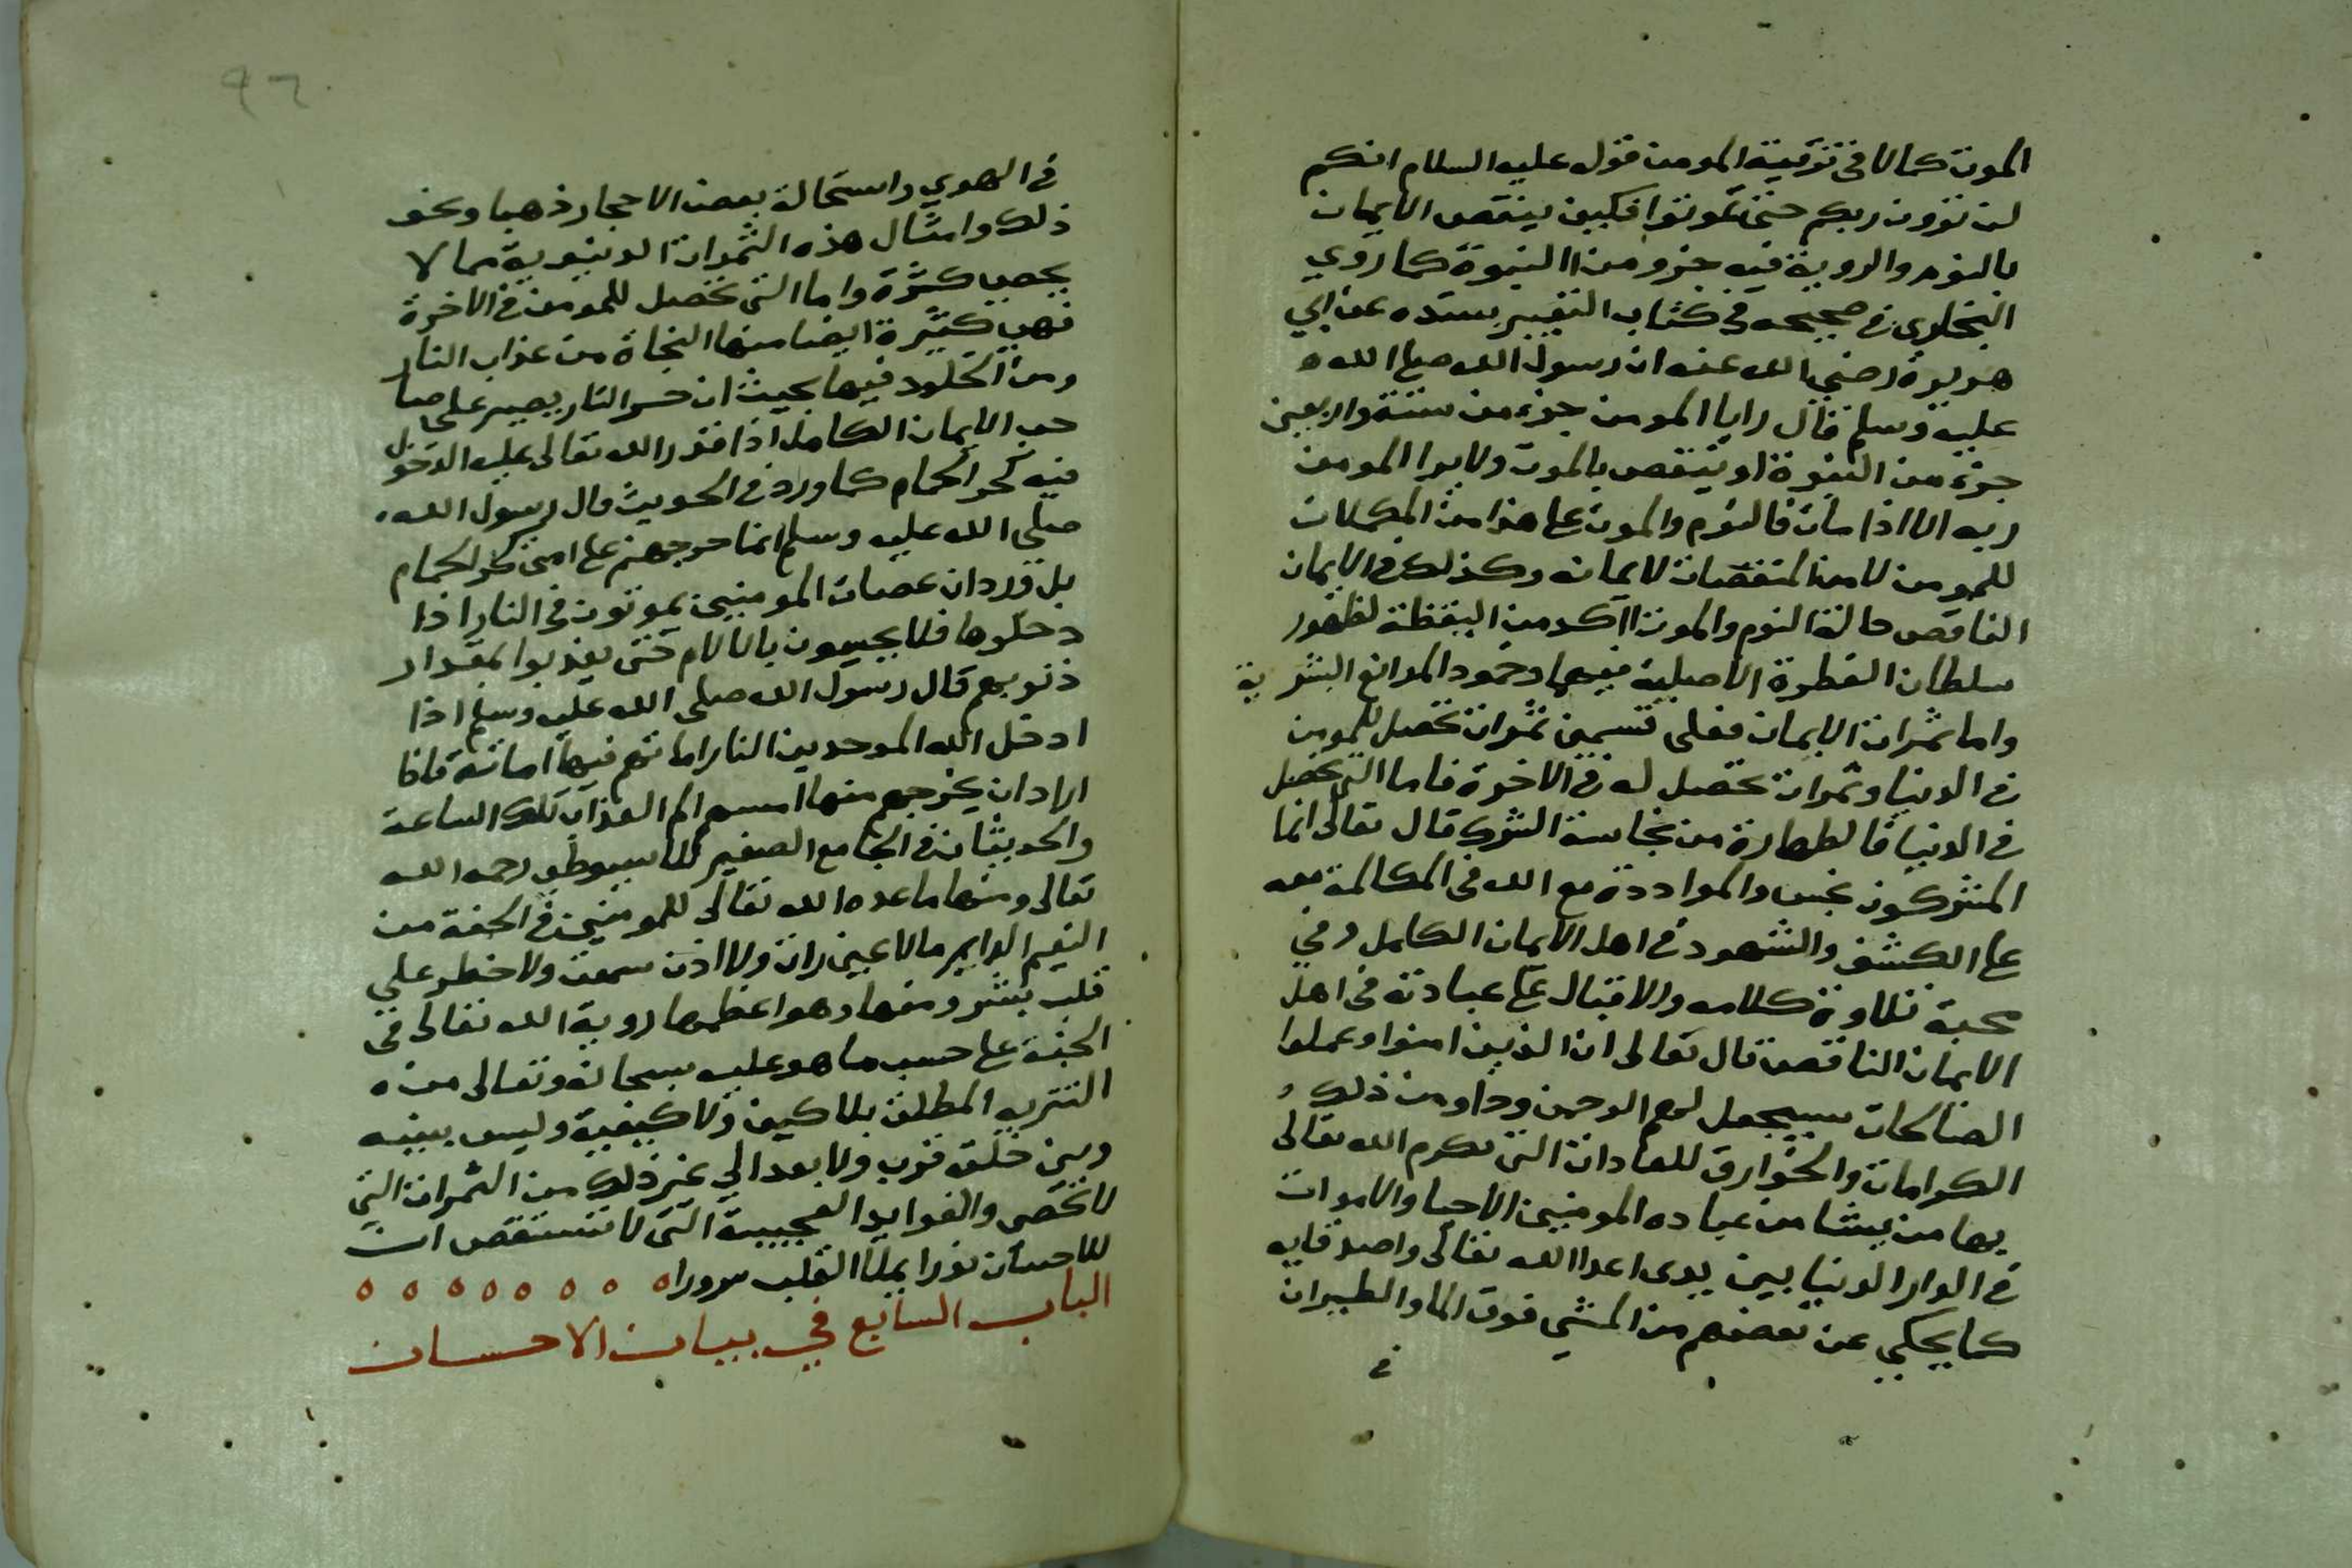 الموت كمالا في ترقية المومن قوله عليه السلام انكم
لن ترون ربكم حتى تموتوا فكيف ينقص الايمان
بالنوم والروية فيه جزو من النبوة كما روي
البخاري في صحيحه في كتاب التعبير بسنده عن ابي
هريرة رضي الله عنه ان رسول الله صلى الله
عليه وسلم قال رايا المومن جزء من ستة واربعين
جزء من النبوة او ينقص بالموت ولا يرا المومن
ربه الا اذا مات فالنوم والموت على هذا من المكملات
للمومن لا من المنقصات لايمانه وكذلك في الايمان
الناقص حالة النوم والموت اكد من اليقظة لظهور
سلطان الفطرة الاصلية فيهما وخمود الموانع البشرية
واما ثمرات الايمان فعلى قسمين ثمرات تحصل للمومن
في الدنيا وثمرات تحصل له في الاخرة فاما التي تحصل
في الدنيا فالطهارة من نجاسة الشرك قال تعالى انما
المشركون نجس والمواددة مع الله في المكالمة معه
على الكشف والشهود في اهل الايمان الكامل وفي
محبة تلاوة كلامه والاقبال على عبادته في اهل
الايمان الناقص قال تعالى ان الذين امنوا وعملوا
الصالحات سيجعل لهم الرحمن ودا ومن ذلك
الكرامات والخوارق للعادات التي يكرم الله تعالى
بها من يشا من عباده المومنين الاحيا والاموات
في الدار الدنيا بين يدى اعدا الله تعالى واصدقايه
كما يحكي عن بعضهم من المشي فوق الما والطيران
في
٩٦
في الهوي واستحالة بعض الاحجار ذهبا ونحو
ذلك وامثال هذه الثمرات الدنيوية مما لا
يحصي كثرة واما التي تحصل للمومن في الاخرة
فهي كثيرة ايضا منها النجاة من عذاب النار
ومن الخلود فيها بحيث ان حر النار يصير على صا
حب الايمان الكامل اذا قدر الله تعالى عليه الدخول
فيه كحر الحمام كما ورد في الحديث قال رسول الله
صلى الله عليه وسلم انما حر جهنم على امتي كحر الحمام
بل ورد ان عصات المومنين يموتون في النار اذا
دخلوها فلا يحسون بالالام حتى يعذبوا بمقدار
ذنوبهم قال رسول الله صلى الله عليه وسلم اذا
ادخل الله الموحدين النار اماتهم فيها اماتة فاذا
اراد ان يخرجهم منها امسهم الم العذاب تلك الساعة
والحديثان في الجامع الصغير للاسيوطي رحمه الله
تعالى ومنها ما عده الله تعالى للمومنين في الجنة من
النعيم الدايم مالا عين رات ولا اذن سمعت ولا خطر علي
قلب بشر ومنها وهو اعظمها روية الله تعالى في
الجنة على حسب ما هو عليه سبحانه وتعالى من
التنزيه المطلق بلا كيف ولا كيفية وليس بينه
وبين خلقه قرب ولا بعد الي غير ذلك من الثمرات التي
لا تحصى والفوايد العجيبة التي لا تستقصى ان
للاحسان نورا يملا القلب سرورا ه ه ه ه ه ه ه ه
الباب السابع في بيان الاحسان